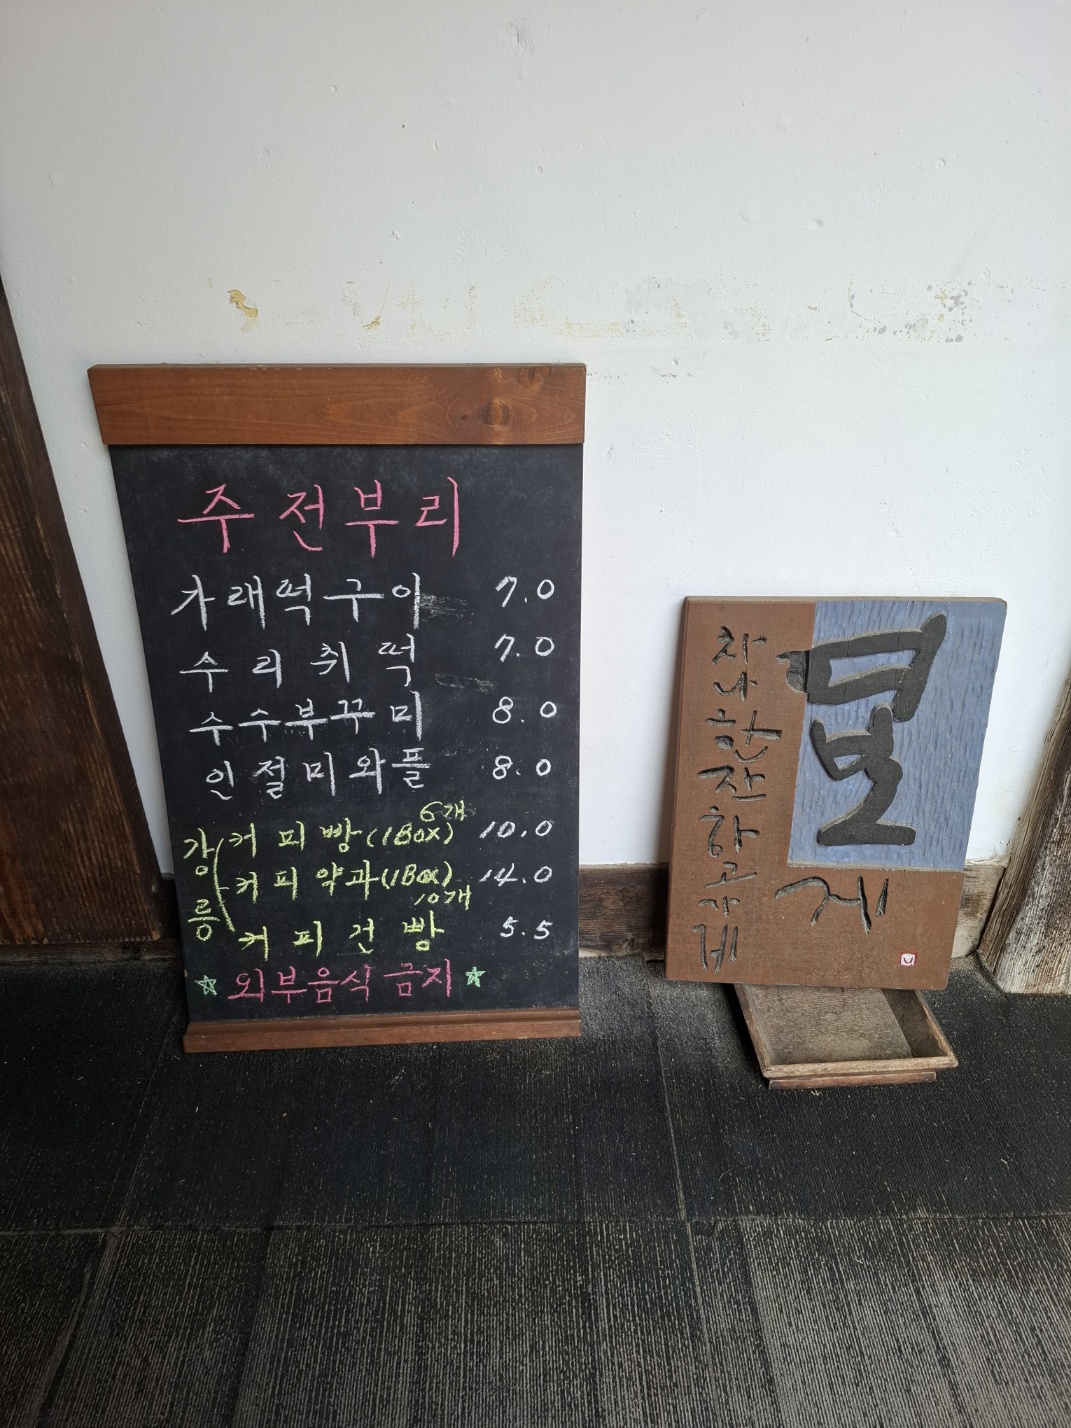 주전부리
가래떡구이 7.0
수리취떡 7.0
수수부꾸미 8.0
인절미와플 8.0
강릉
커피빵(1BOX) 6개 10.0
커피약과(1BOX) 10개 14.0
커피건빵 5.5
☆외부음식 금지☆
차나 한잔 하고 가게